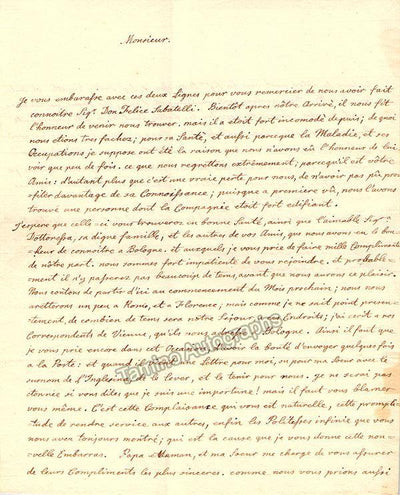 Monsieur.
Je vous embarasse avec ces deux Lignes pour vous remercier de nous avoir fait
connoitre Sigr. Don Felice Sabatelli. Bientôt apres nôtre Arrivé, il nous fit
l'honneur de venir nous trouver. mais il a étoit fort incomodé depuis; de quoi
nous etions tres fachez; pour sa Santé, et aussi parceque la Maladie, et ses
Occupations je suppose ont été la raison que nous n'avons eû l'honneur de lui
voir que peu de fois. ce que nous regrettons extrèmement; parcequ'il est vôtre
Amis: d'autant plus que c'est une vraie perte pour nous, de n'avoir pas pû pro-
fiter davantage de sa Connoissance; puisque a premiere vûe, nous l'avons
trouvé une personne dont la Compagnie étoit fort edifiant.
J'espere que celle-ci vous trouveras en bonne Santé, ainsi que l'aimable Sigra.
Dottoressa, sa digne famille, et les autres de vos Amis, que nous avons eu le bon-
heur de connoitre a Bologne. et auxquels je vous prie de faire mille Complimens
de nôtre part. nous sommes fort impatiente de vous rejoindre. et probable-
ment il n'y passeras pas beaucoup de tems, avant que nous aurons ce plaisir.
Nous contons de partir d'ici au commencement du Mois prochain; nous nous
arretterons un peu a Rome, et a Florence; mais comme je ne sait point presen-
tement, de combien de tems sera notre Sejour Endroits; j'ai ecrit a nos
Correspondents de Vienne, qu'ils nous Bologne. Ainsi il faut que
je vous prie encore dans cet la bonté d'envoyer quelques fois
a la Poste: et quand Lettre pour moi, ou pour ma Soeur avec le
surnom de l'Inglesina de la lever, et le tenir pour nous. je ne serai pas
etonnée si vous dites que je suis une importune! mais il faut vous blamer
vous même. C'est cette Complaisance qui vous est naturelle, cette promp-
titude de rendre service aux autres, enfin les Politesses infinie que vous
nous avez toujours montré; qui est la cause que je vous donne cette nou-
velle Embarras. Papa, Maman, et ma Soeur me charge de vous assurer
de leurs Complimens les plus sinceres. comme nous vous prions aussi
Tamino Autographs